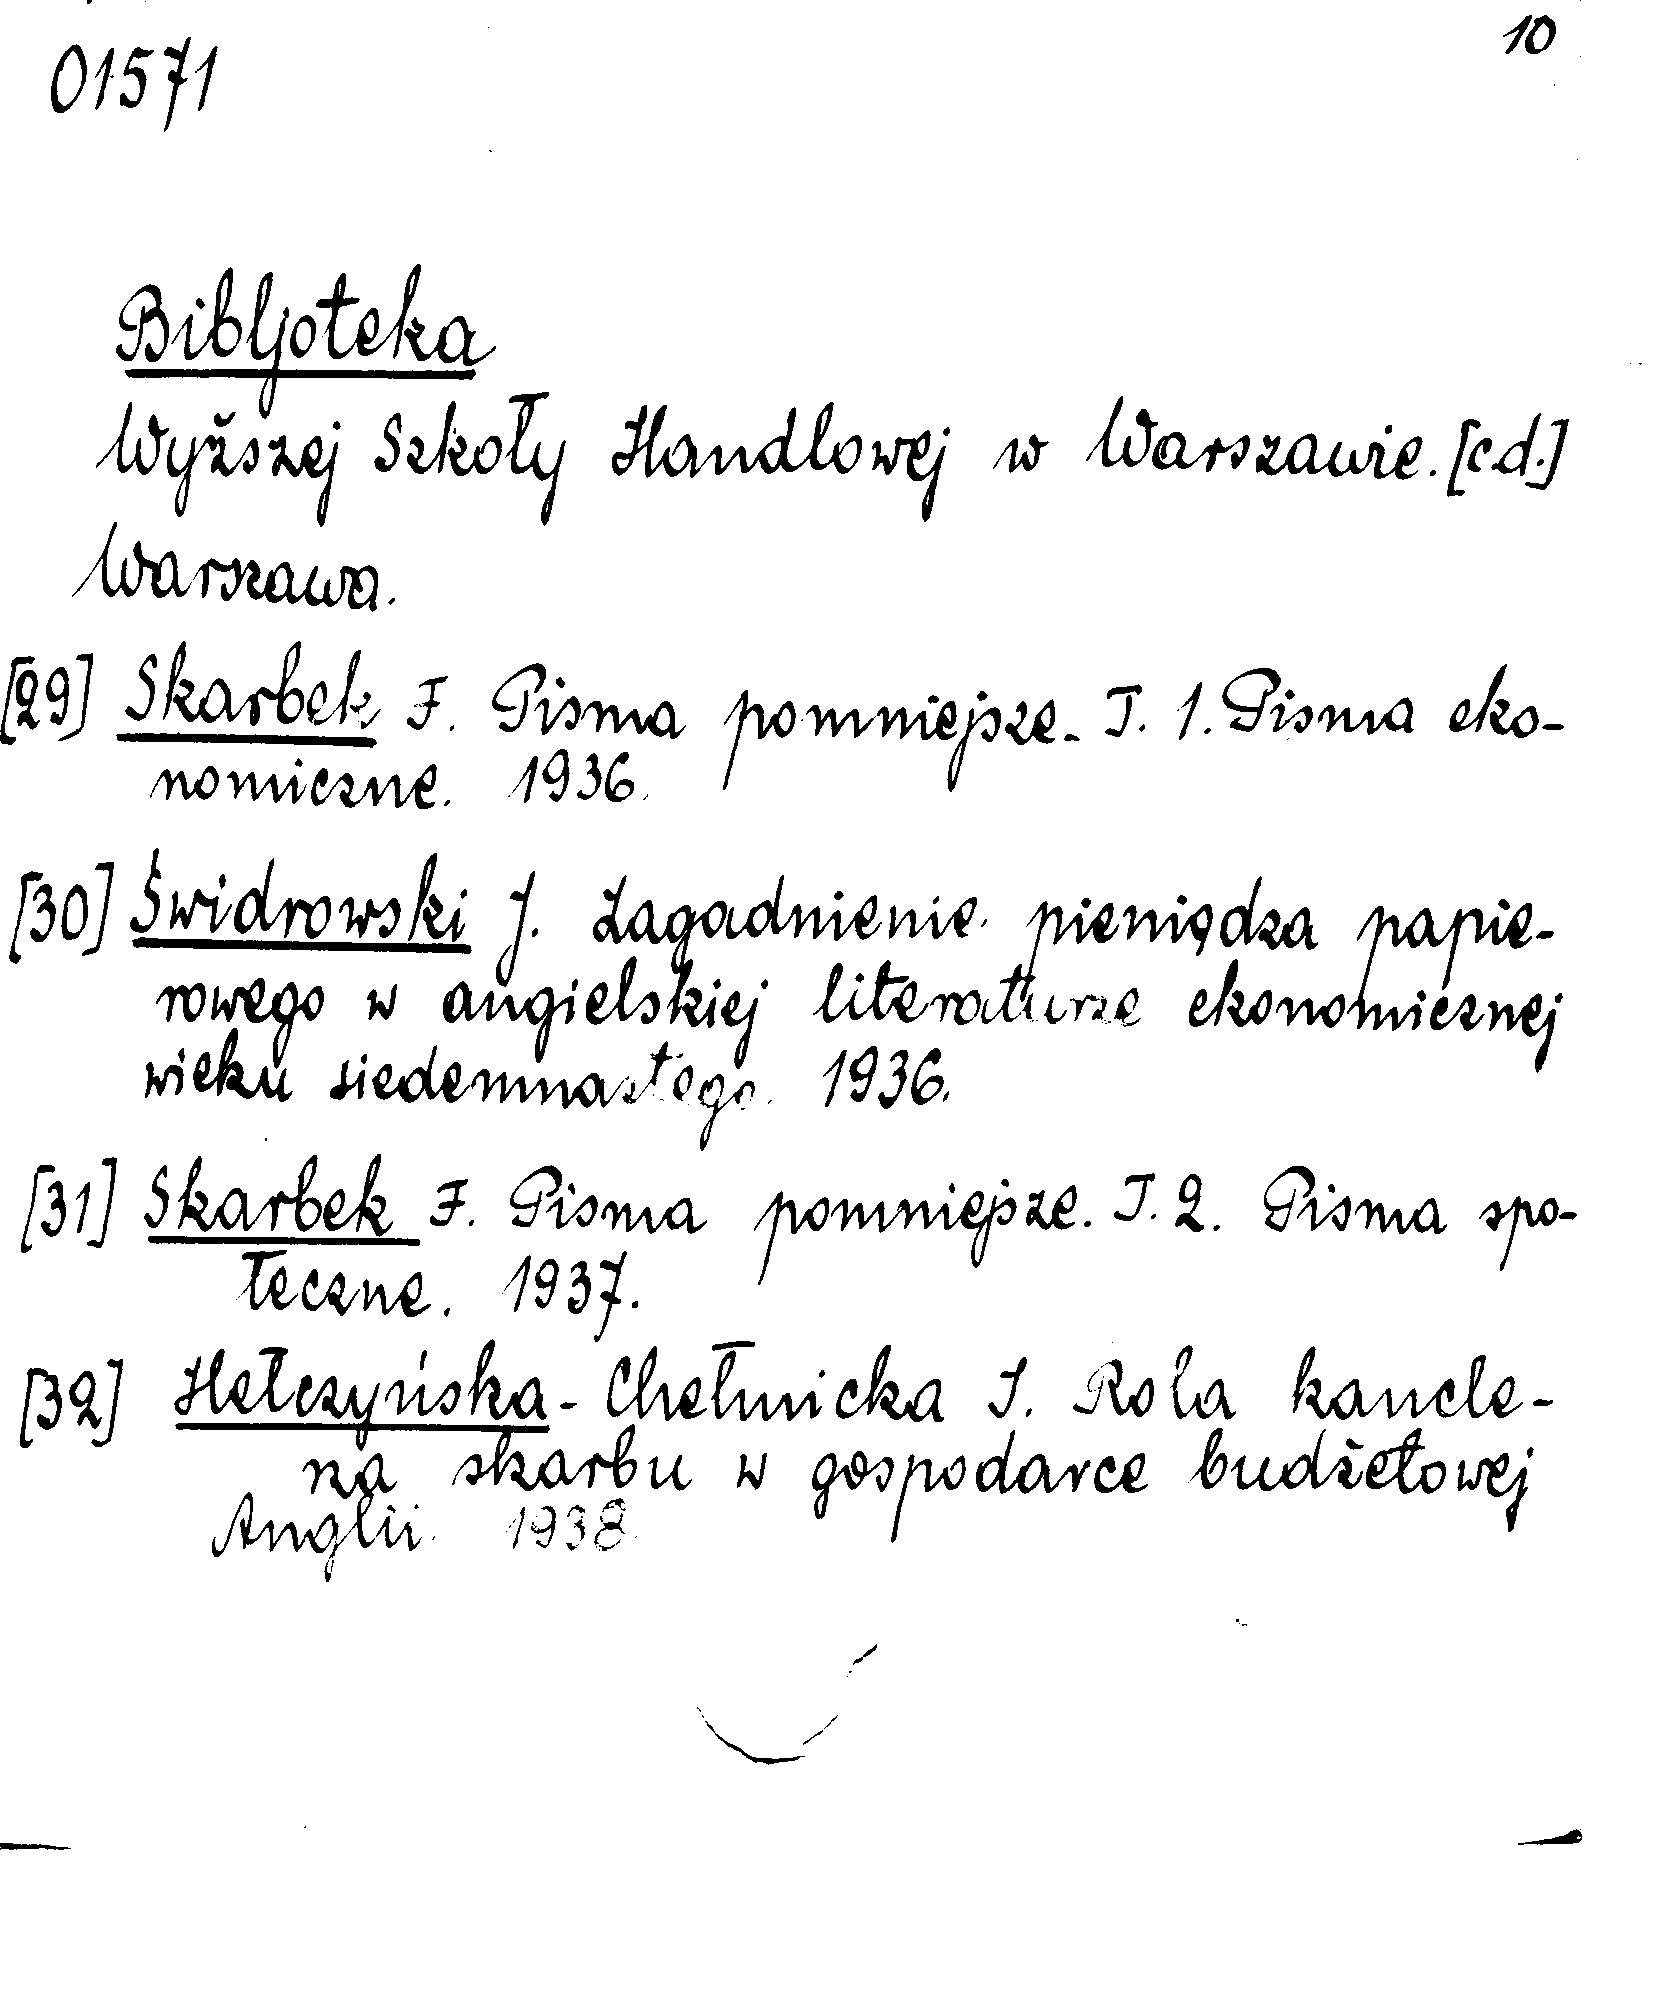 10
01571
Bibljoteka
Wyższej Szkoły Handlowej w Warszawie. [cd.]
Warszawa.
[29] Skarbek F. Pisma pomniejsze. T. 1. Pisma eko-
nomiczne. 1936.
[30] Świdrowski J. Zagadnienie pieniądza papie-
rowego w angielskiej literaturze ekonomicznej
wieku siedemnastego. 1936.
[31] Skarbek F. Pisma pomniejsze. T. 2. Pisma spo-
łeczne. 1937.
[32] Hełczyńska-Chełmicka I. Rola kancle-
rza skarbu w gospodarce budżetowej
Anglii. 1938.